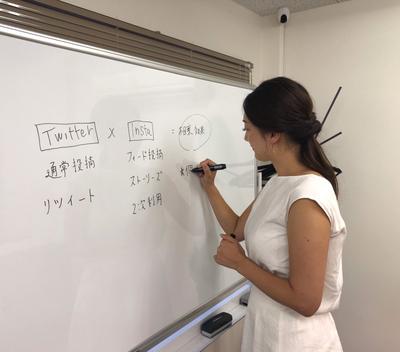 Twitter × Insta =
通常投稿 フィード投稿
ストーリーズ
リツイート 2次利用